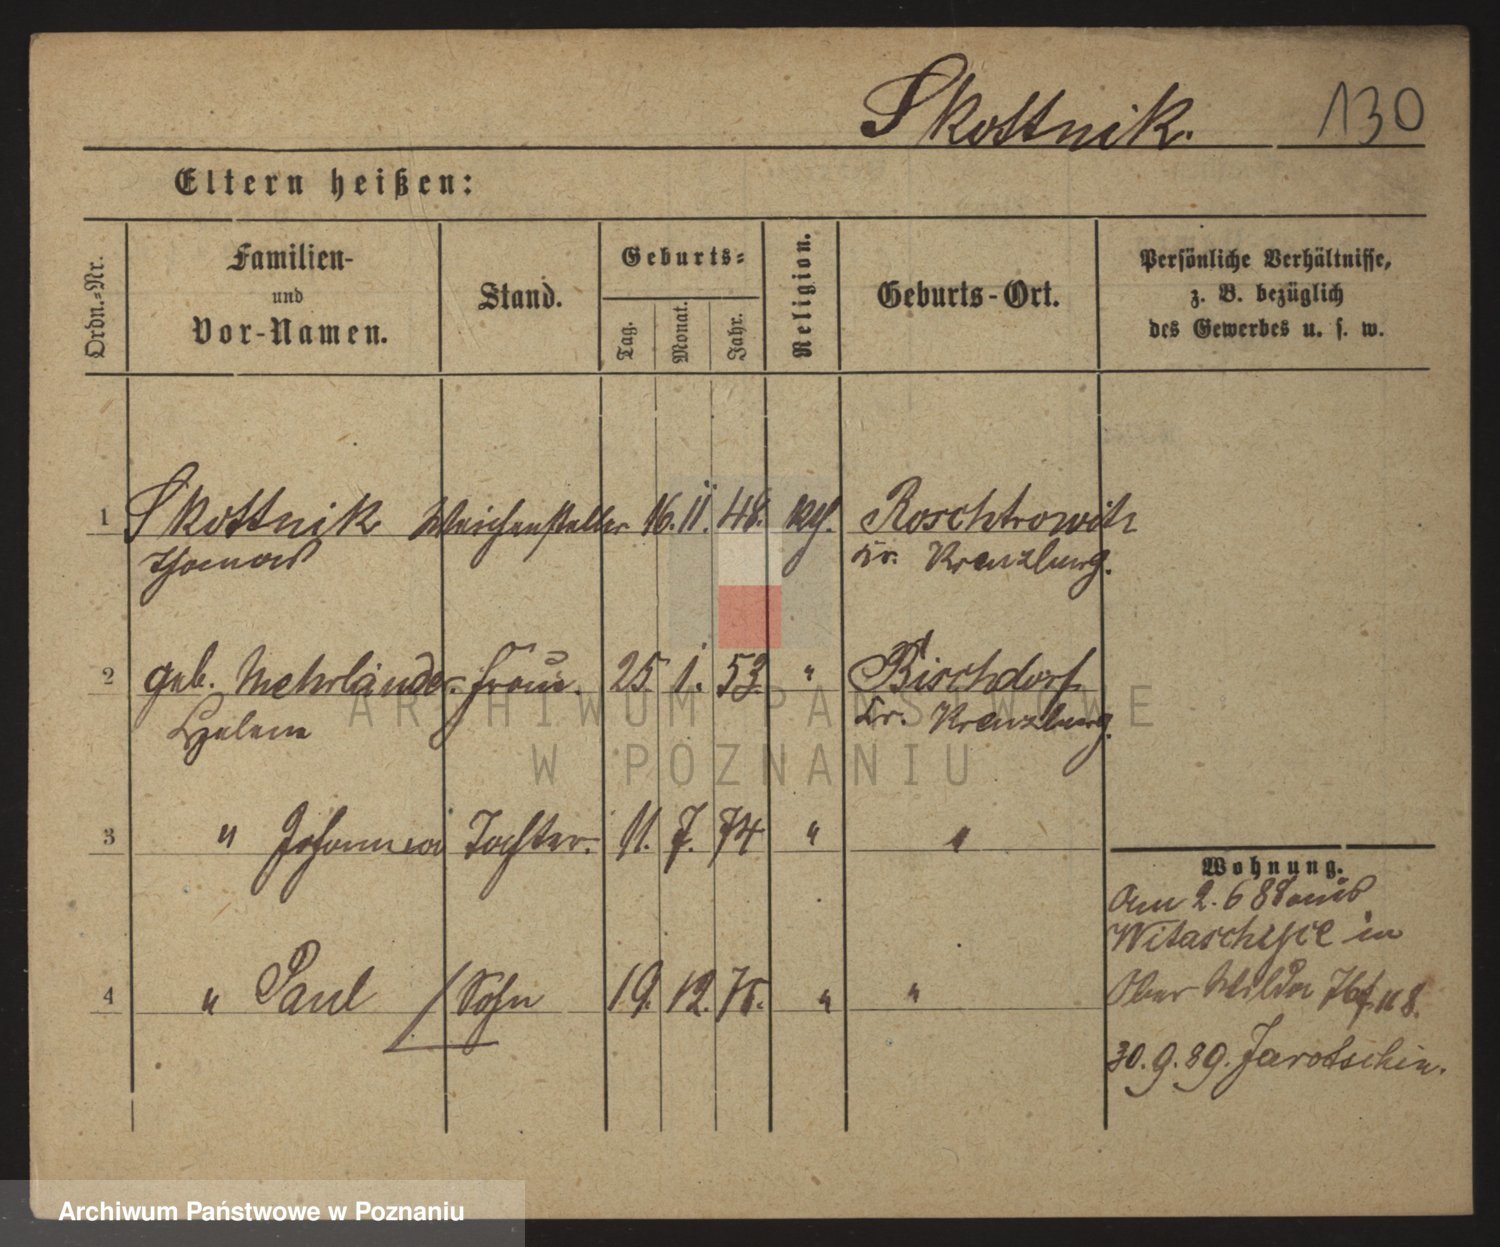 Skottnik. 130
Eltern heißen:
Ordn.-Nr.
Familien-
und
Vor-Namen.
Stand.
Geburts-
Tag.
Monat.
Jahr.
Religion.
Geburts-Ort.
Persönliche Verhältnisse,
z. B. bezüglich
des Gewerbes u. s. w.
1 Skottnik Weichensteller 16. 11. 48. Roschkowitz
Thomas Kr. Kreuzburg.
2 geb. Mehrländer Frau. 25. 1. 53 " Bischdorf
Helene Kr. Kreuzburg.
3 " Johanna Tochter. 11. 7. 74 " "
4 " Paul Sohn 19. 12. 75. " "
Wohnung.
Am 2. 6 88 aus
Witaschütz in
Ober Wilda
30. 9. 89. Jarotschin.
ARCHIWUM PAŃSTWOWE
W POZNANIU
Archiwum Państwowe w Poznaniu